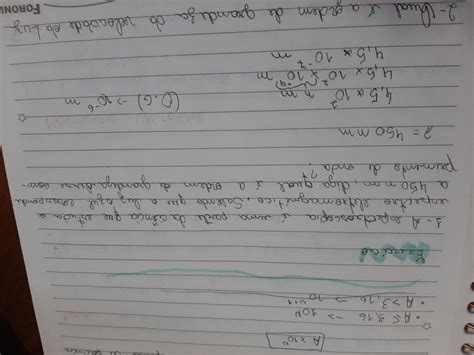 A x 10ⁿ
• A ≤ 3,16 => 10ⁿ
• A > 3,16 => 10ⁿ⁺¹
Exercícios
1- A espectroscopia é uma parte da ciência que estuda o
espectro eletromagnético. Sabendo que a luz azul corresponde
a 450 nm, diga qual é a ordem de grandeza desse com-
primento de onda?
λ = 450 nm
4,5 x 10² nm
4,5 x 10² x 10⁻⁹ m
4,5 x 10⁻⁷ m
(O.G) -> 10⁻⁶ m
2- Qual é a ordem de grandeza da velocidade da luz
FORONI